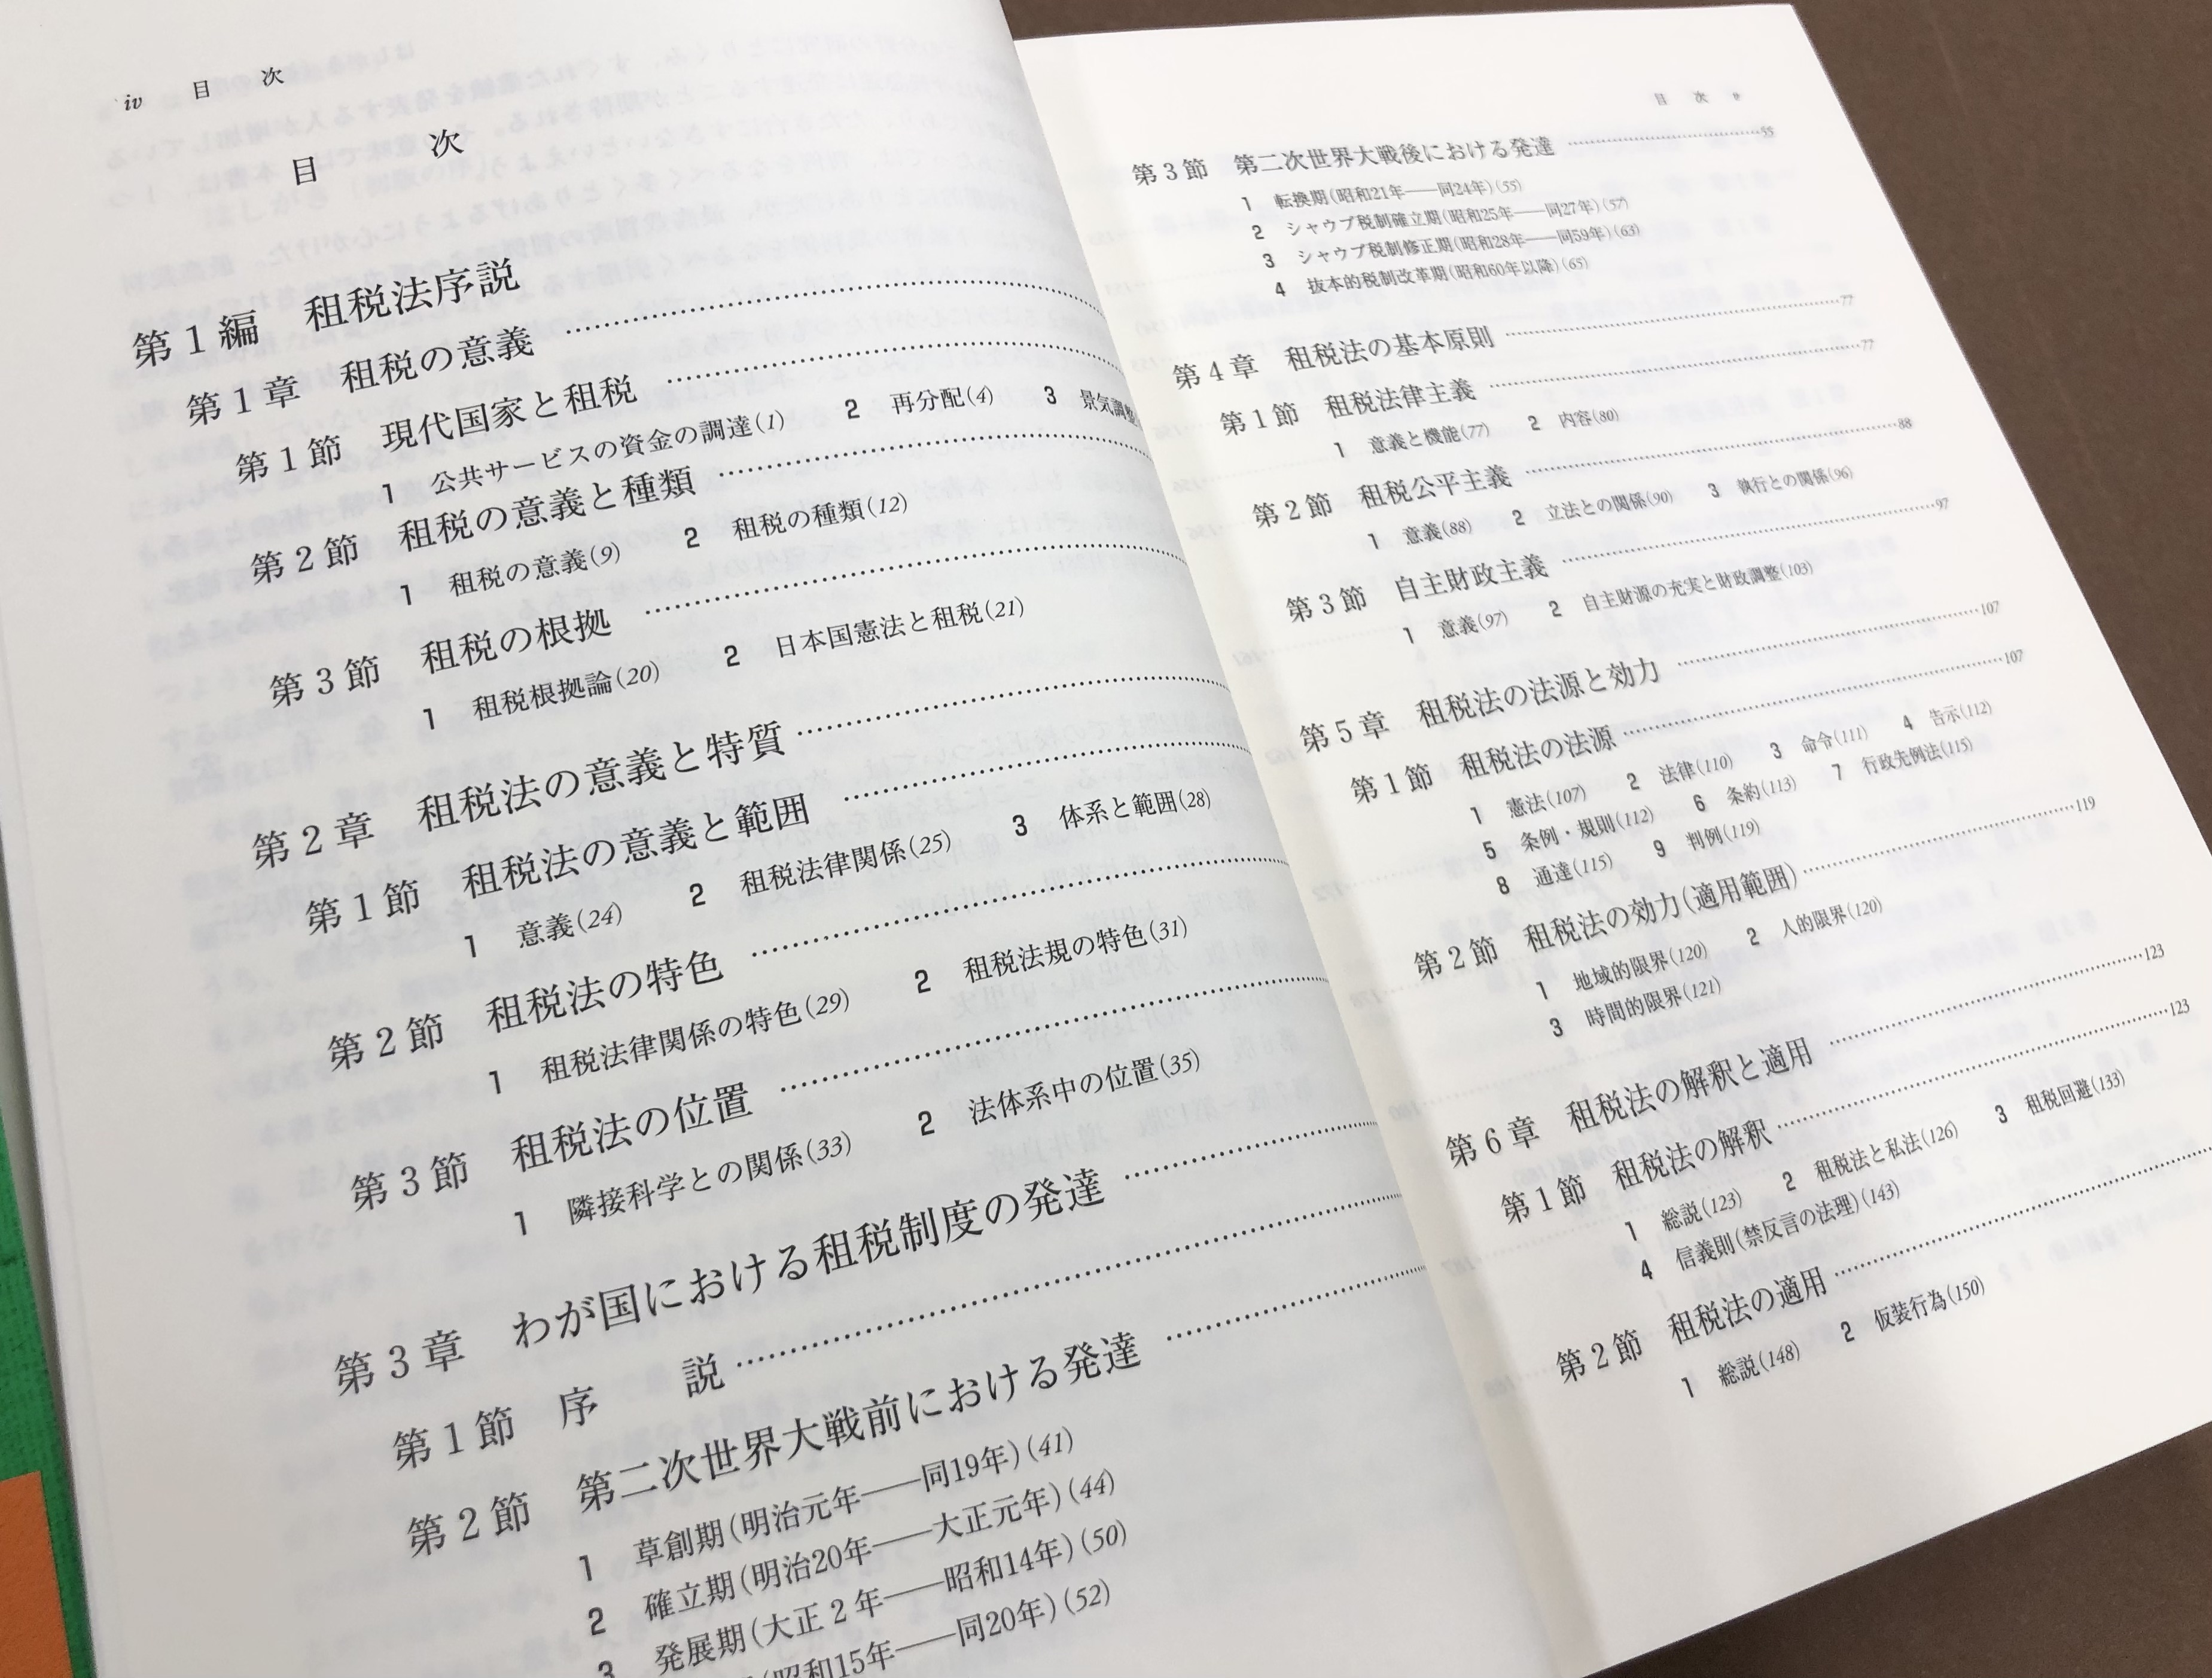 iv 目 次
目 次
第1編 租税法序説
第1章 租税の意義
第1節 現代国家と租税
1 公共サービスの資金の調達(1) 2 再分配(4) 3 景気調整
第2節 租税の意義と種類
1 租税の意義(9) 2 租税の種類(12)
第3節 租税の根拠
1 租税根拠論(20) 2 日本国憲法と租税(21)
第2章 租税法の意義と特質
第1節 租税法の意義と範囲
1 意義(24) 2 租税法律関係(25) 3 体系と範囲(28)
第2節 租税法の特色
1 租税法律関係の特色(29) 2 租税法規の特色(31)
第3節 租税法の位置
1 隣接科学との関係(33) 2 法体系中の位置(35)
第3章 わが国における租税制度の発達
第1節 序 説
第2節 第二次世界大戦前における発達
1 草創期(明治元年——同19年)(41)
2 確立期(明治20年——大正元年)(44)
3 発展期(大正2年——昭和14年)(50)
(昭和15年——同20年)(52)
目 次 v
第3節 第二次世界大戦後における発達 55
1 転換期(昭和21年——同24年)(55)
2 シャウプ税制確立期(昭和25年——同27年)(57)
3 シャウプ税制修正期(昭和28年——同59年)(63)
4 抜本的税制改革期(昭和60年以降)(65)
第4章 租税法の基本原則 77
第1節 租税法律主義 77
1 意義と機能(77) 2 内容(80)
第2節 租税公平主義 88
1 意義(88) 2 立法との関係(90) 3 執行との関係(96)
第3節 自主財政主義 97
1 意義(97) 2 自主財源の充実と財政調整(103)
第5章 租税法の法源と効力 107
第1節 租税法の法源 107
1 憲法(107) 2 法律(110) 3 命令(111) 4 告示(112)
5 条例・規則(112) 6 条約(113) 7 行政先例法(115)
8 通達(115) 9 判例(119)
第2節 租税法の効力(適用範囲) 119
1 地域的限界(120) 2 人的限界(120)
3 時間的限界(121)
第6章 租税法の解釈と適用 123
第1節 租税法の解釈 123
1 総説(123) 2 租税法と私法(126) 3 租税回避(133)
4 信義則(禁反言の法理)(143)
第2節 租税法の適用
1 総説(148) 2 仮装行為(150)